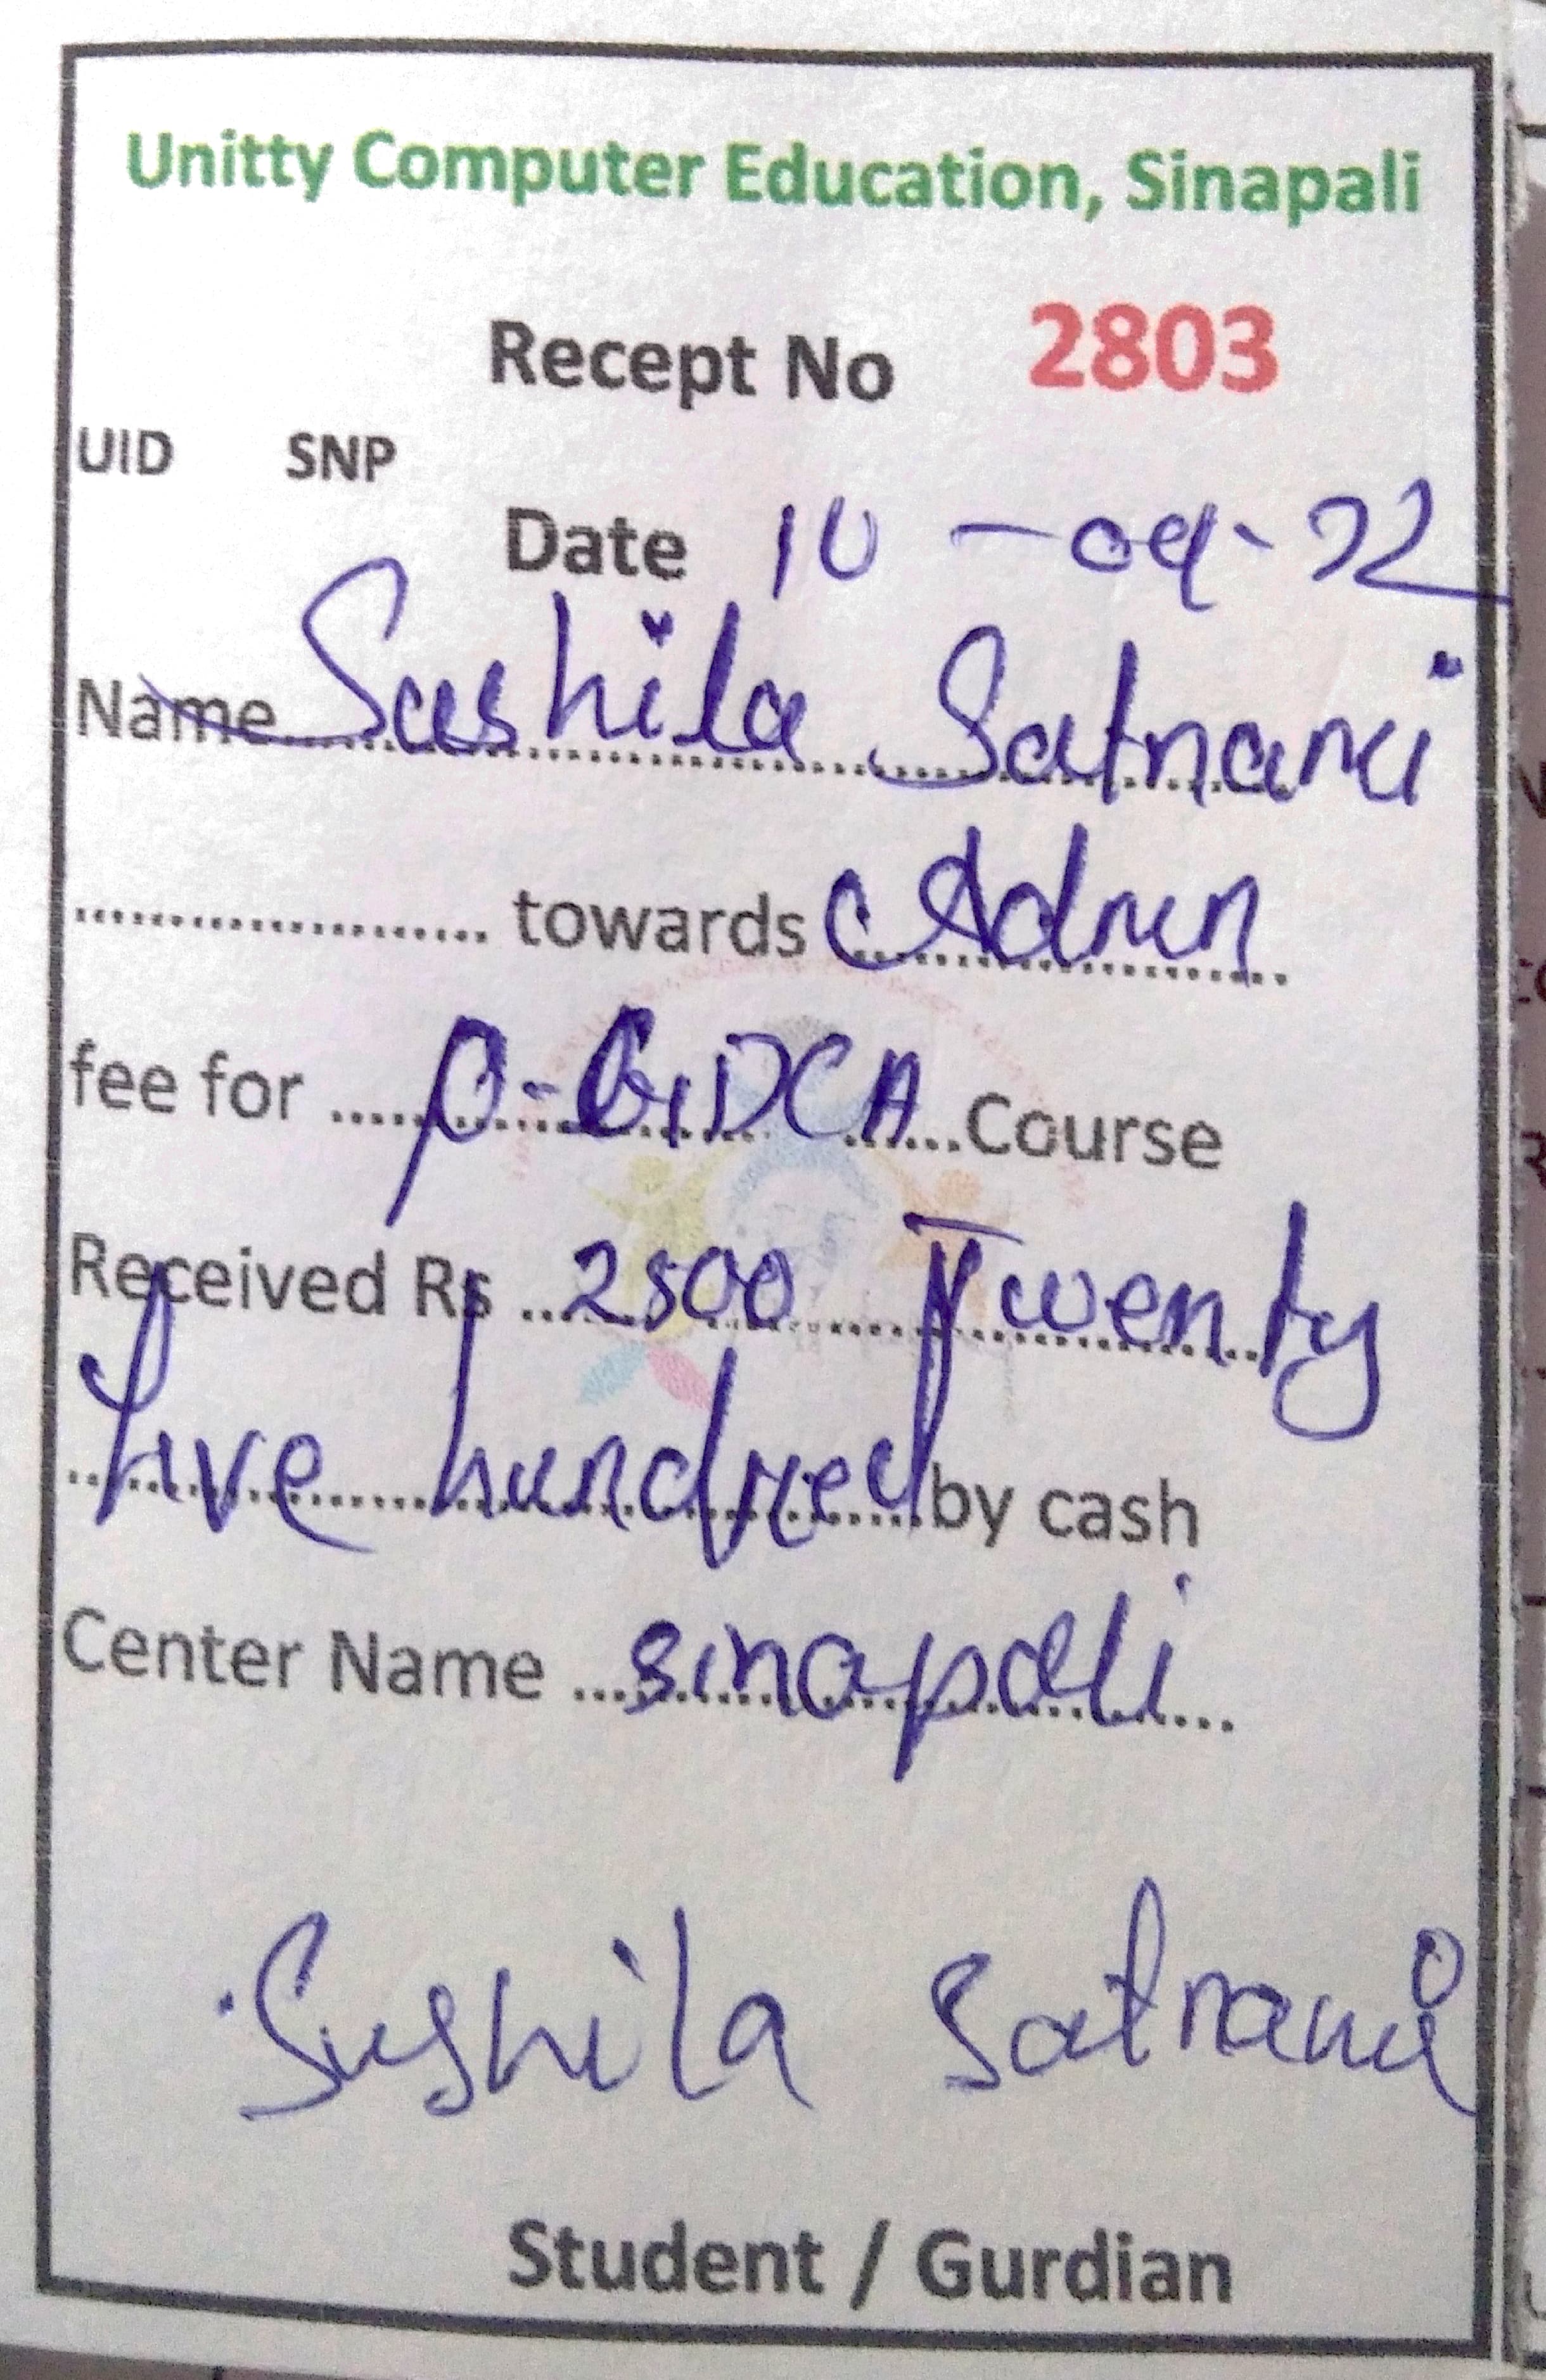 Unitty Computer Education, Sinapali
Recept No 2803
UID SNP
Date 10-09-22
Name Sushila Satnami
.................... towards Admn
fee for ..... P-GDCA .....Course
Received Rs ..2500 Twenty
five hundred by cash
Center Name ...sinapali...
Sushila Satnami
Student / Gurdian